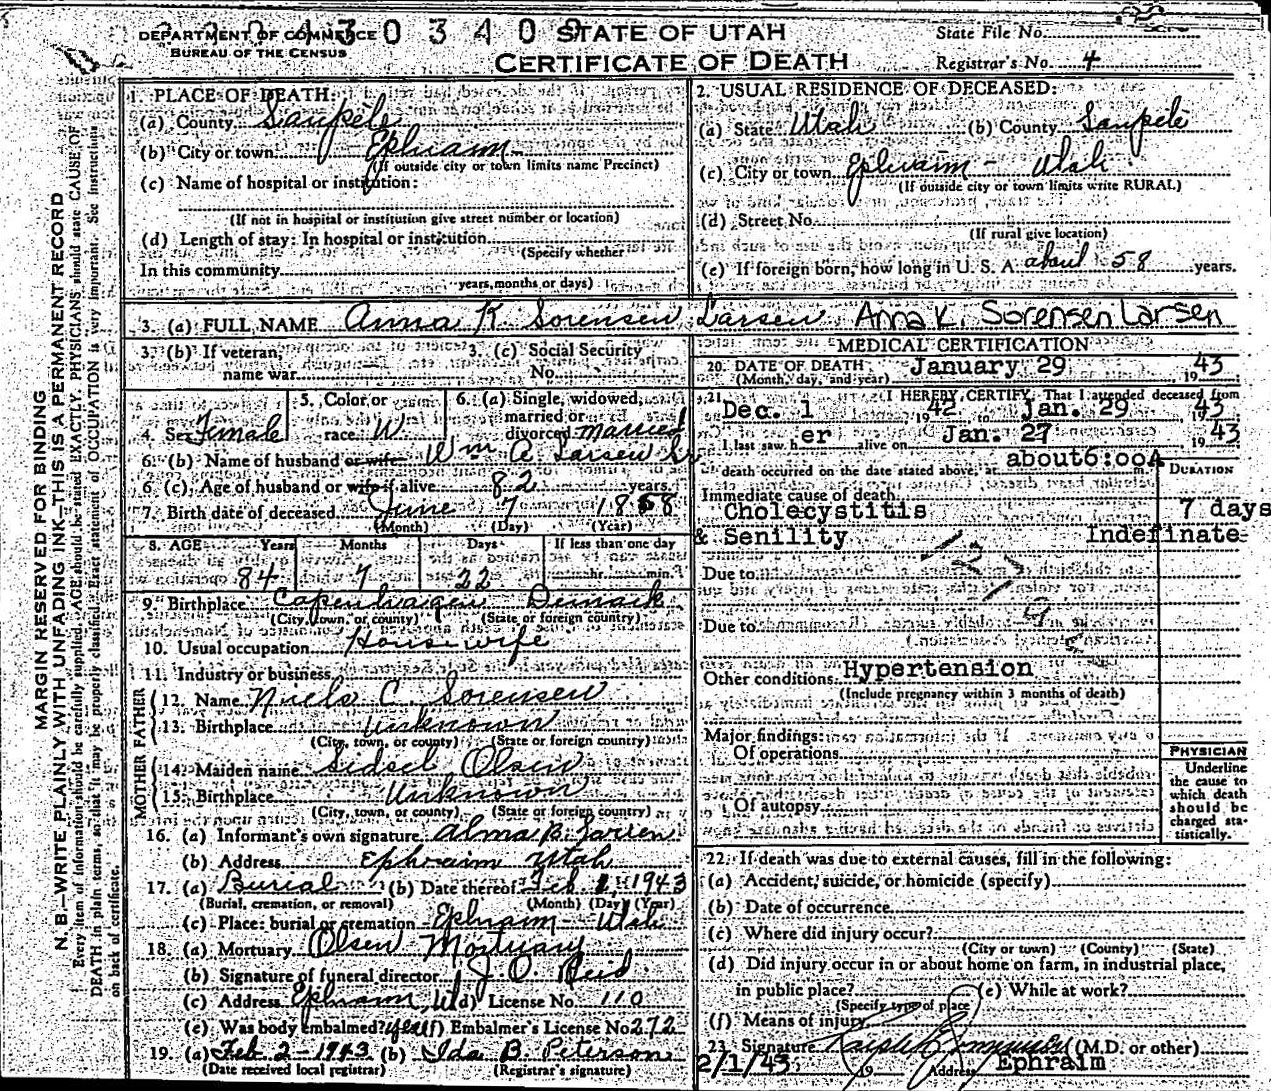 DEPARTMENT OF COMMERCE
BUREAU OF THE CENSUS
STATE OF UTAH
CERTIFICATE OF DEATH
State File No.
Registrar's No. 4
MARGIN RESERVED FOR BINDING
N. B.—WRITE PLAINLY WITH UNFADING INK—THIS IS A PERMANENT RECORD
Every item of information should be carefully supplied. AGE should be stated EXACTLY. PHYSICIANS should state CAUSE OF
DEATH in plain terms, so that it may be properly classified. Exact statement of OCCUPATION is very important. See instructions
on back of certificate.
1. PLACE OF DEATH:
(a) County Sanpete
(b) City or town Ephraim
(If outside city or town limits name Precinct)
(c) Name of hospital or institution:
(If not in hospital or institution give street number or location)
(d) Length of stay: In hospital or institution
(Specify whether
In this community
years, months or days)
2. USUAL RESIDENCE OF DECEASED:
(a) State Utah (b) County Sanpete
(c) City or town Ephraim - Utah
(If outside city or town limits write RURAL)
(d) Street No.
(If rural give location)
(e) If foreign born, how long in U. S. A. about 58 years.
3. (a) FULL NAME Anna K Sorensen Larsen Anna K. Sorensen Larsen
3. (b) If veteran,
name war
3. (c) Social Security
No.
4. Sex Female
5. Color or
race W
6. (a) Single, widowed,
married or
divorced married
6. (b) Name of husband or wife Wm A. Larsen Sr
6. (c) Age of husband or wife if alive 82 years.
7. Birth date of deceased June 7 1858
(Month) (Day) (Year)
8. AGE Years Months Days If less than one day
84 7 22 hr. min.
9. Birthplace Copenhagen Denmark
(City, town, or county) (State or foreign country)
10. Usual occupation Housewife
11. Industry or business
FATHER
12. Name Niels C. Sorensen
13. Birthplace Unknown
(City, town, or county) (State or foreign country)
MOTHER
14. Maiden name Sidsel Olsen
15. Birthplace Unknown
(City, town, or county) (State or foreign country)
16. (a) Informant's own signature Alma B. Larsen
(b) Address Ephraim Utah
17. (a) Burial (b) Date thereof Feb 1, 1943
(Burial, cremation, or removal) (Month) (Day) (Year)
(c) Place: burial or cremation Ephraim - Utah
18. (a) Mortuary Olsen Mortuary
(b) Signature of funeral director J. O. Reid
(c) Address Ephraim, Ut (d) License No. 110
(e) Was body embalmed? yes (f) Embalmer's License No 272
19. (a) Feb. 2 - 1943 (b) Ida B. Peterson
(Date received local registrar) (Registrar's signature)
MEDICAL CERTIFICATION
20. DATE OF DEATH January 29 1943
(Month, day, and year)
21. I HEREBY CERTIFY, That I attended deceased from
Dec. 1 1942 to Jan. 29 1943
I last saw her alive on Jan. 27 1943
death occurred on the date stated above, at about 6:00A m.
DURATION
Immediate cause of death
Cholecystitis 7 days
& Senility Indefinate
Due to
Due to
Other conditions Hypertension
(Include pregnancy within 3 months of death)
Major findings:
Of operations
Of autopsy
PHYSICIAN
Underline
the cause to
which death
should be
charged sta-
tistically.
22. If death was due to external causes, fill in the following:
(a) Accident, suicide, or homicide (specify)
(b) Date of occurrence
(c) Where did injury occur?
(City or town) (County) (State)
(d) Did injury occur in or about home on farm, in industrial place,
in public place? (e) While at work?
(Specify type of place)
(f) Means of injury
23. Signature (M.D. or other)
2/1/43 19 Address Ephraim